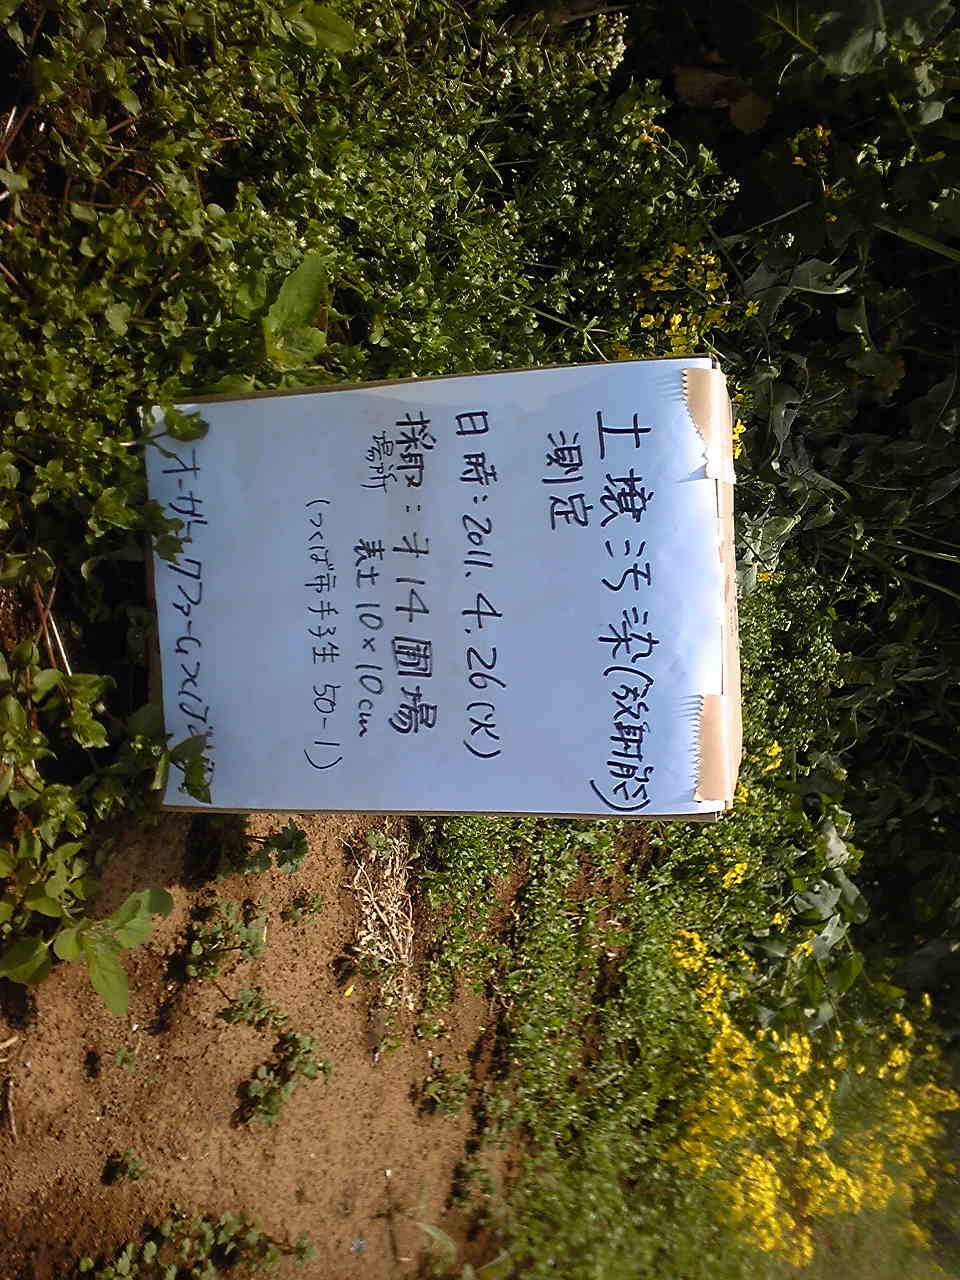 土壌汚染(放射能)
測定
日時：2011.4.26(火)
採取場所：才14圃場
表土10×10cm
(つくば市手子生 50-1)
オーガニックファームつくば